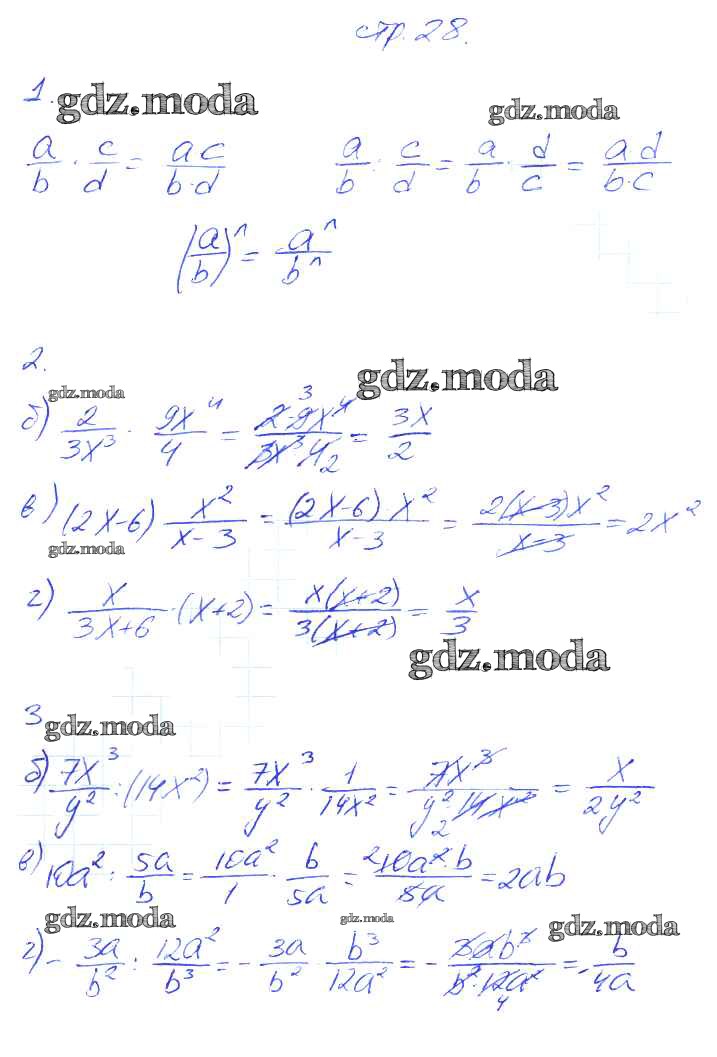 стр. 28.
1. gdz.moda gdz.moda
a/b · c/d = ac/b·d a/b : c/d = a/b · d/c = ad/b·c
(a/b)ⁿ = aⁿ/bⁿ
2. gdz.moda
gdz.moda
б) 2/3x³ · 9x⁴/4 = 2·9x⁴/3x³·4 = 3x/2
3
2
в) (2x-6) · x²/x-3 = (2x-6)·x²/x-3 = 2(x-3)x²/x-3 = 2x²
gdz.moda
г) x/3x+6 · (x+2) = x(x+2)/3(x+2) = x/3
gdz.moda
3 gdz.moda
б) 7x³/y² : (14x²) = 7x³/y² · 1/14x² = 7x³/y² 14x² = x/2y²
2
в) 10a² : 5a/b = 10a²/1 · b/5a = 10a²·b/5a = 2ab
2
gdz.moda gdz.moda gdz.moda
г) - 3a/b² : 12a²/b³ = - 3a/b² · b³/12a² = - 3ab³/b²·12a² = - b/4a
4